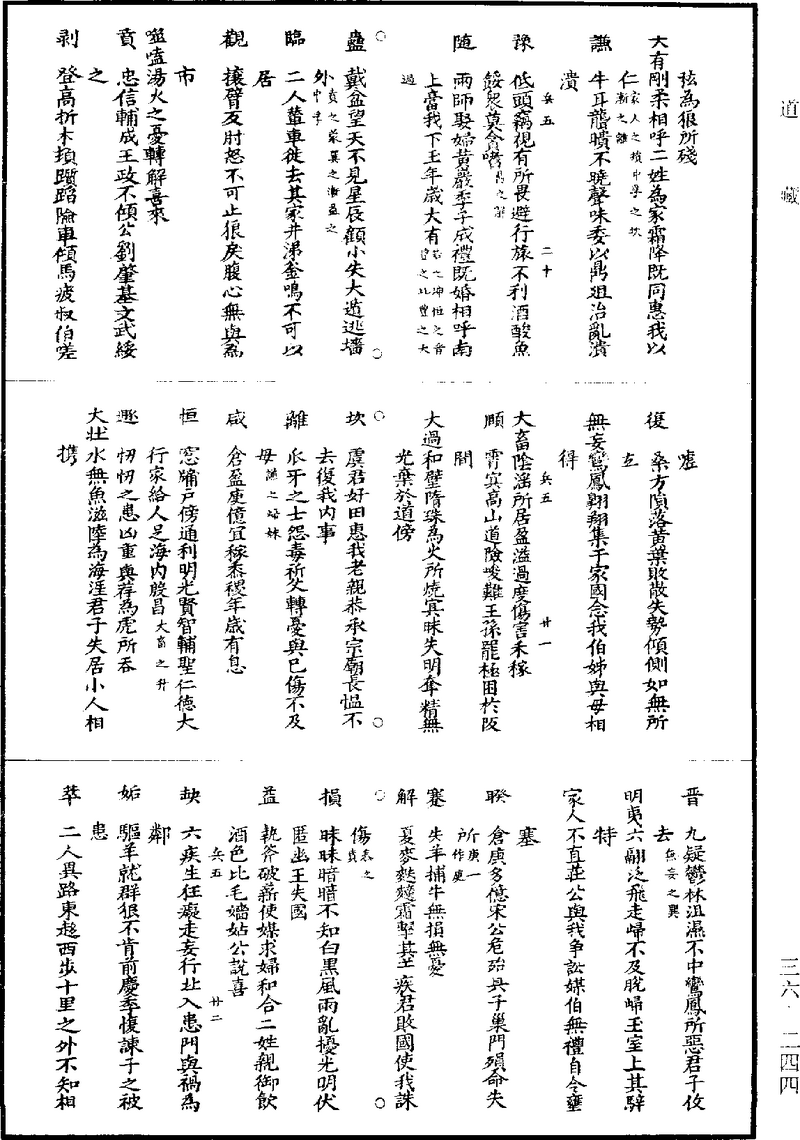 道藏
弦為狠所殘
大有剛柔相呼二姓為家霜降既同惠我以
仁家人之頤中孚之坎漸之離
謙 牛耳聾聵不曉聲味委以鼎俎治亂潰
潰
豫 低頭竊視有所畏避行旅不利酒酸魚
兵五 二十
餒眾莫貪嗜
随 兩師娶婦黃巖季子成禮既婚相呼南
上膏我下土年歲大有
過
蠱 戴盆望天不見星辰顧小失大遁逃墻
外賁之蒙巽之漸益之中孚
臨 二人輦車徙去其家井沸釜鳴不可以
居
觀 攘臂反肘怒不可止狠戾腹心無與為
市
噬嗑湯火之憂轉解喜來
賁 忠信輔成王政不傾公劉肇基文武綏
之
剥 登高折木頓躓蹈險車傾馬疲叔伯嗟
嘘
復 桑方隕落黃葉敗散失勢傾側如無所
立
無妄鸞鳳翱翔集于家國念我伯姊與母相
得
大畜陰淫所居盈溢過度傷害禾稼
兵五 廿一
頤 霄冥高山道險峻難王孫罷極困於阪
間
大過和璧隋珠為火所燒冥昧失明奪精無
光棄於道傍
坎 虞君好田惠我老親恭承宗廟長愠不
去復我内事
離 爪牙之士怨毒祈父轉憂與已傷不及
母謙之歸妹
咸 倉盈庾億宜稼黍稷年歲有息
恒 窓牖戶傍通利明光賢智輔聖仁德大
行家給人足海内殷昌大畜之升
遯 忉忉之患凶重與荐為虎所吞
大壯水無魚滋陸為海涯君子失居小人相
携
晋 九疑鬱林沮濕不中鸞鳳所惡君子攸
去無妄之巽
明夷六翮泛飛走歸不及脫歸王室上其騂
特
家人不直莊公與我争訟媒伯無禮自令壅
塞
睽 倉庾多億宋公危殆吴子巢門殞命失
所庾一作庚
蹇 失羊捕牛無損無憂
解 夏麥麩𪍿霜擊其芒疾君敗國使我誅
傷
損 昧昧暗暗不知白黑風雨亂擾光明伏
匿幽王失國
益 執斧破薪使媒求婦和合二姓親御飲
酒色比毛嬙姑公說喜
兵五 廿二
夬 六疾生狂癡走妄行北入患門與禍為
鄰
姤 驅羊就群狠不肯前慶季愎諫子之被
患
萃 二人異路東趍西步十里之外不知相
三六·二四四